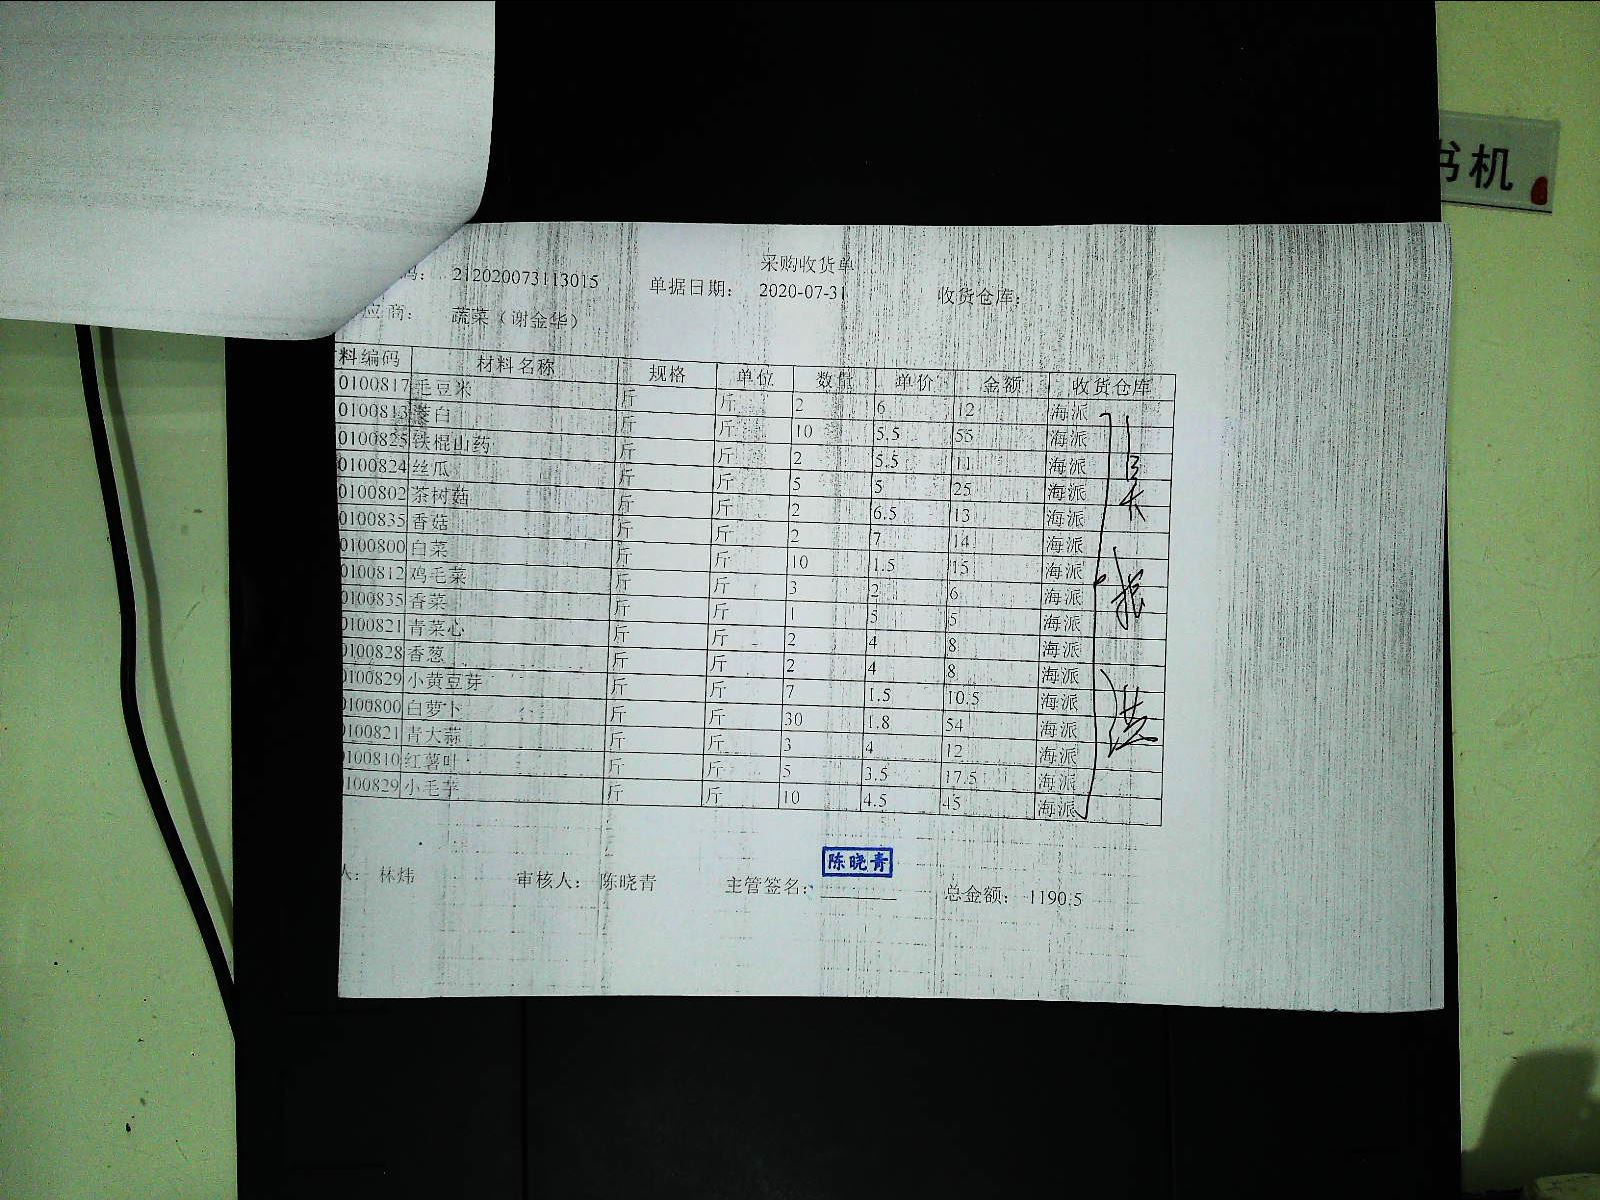 书机
采购收货单
码： 212020073113015 单据日期： 2020-07-31 收货仓库：
应商： 蔬菜（谢金华）
料编码 材料名称 规格 单位 数量 单价 金额 收货仓库
0100817 毛豆米 斤 斤 2 6 12 海派
0100813 茭白 斤 斤 10 5.5 55 海派
0100825 铁棍山药 斤 斤 2 5.5 11 海派
0100824 丝瓜 斤 斤 5 5 25 海派
0100802 茶树菇 斤 斤 2 6.5 13 海派
0100835 香菇 斤 斤 2 7 14 海派
0100800 白菜 斤 斤 10 1.5 15 海派
0100812 鸡毛菜 斤 斤 3 2 6 海派
0100835 香菜 斤 斤 1 5 5 海派
0100821 青菜心 斤 斤 2 4 8 海派
0100828 香葱 斤 斤 2 4 8 海派
0100829 小黄豆芽 斤 斤 7 1.5 10.5 海派
0100800 白萝卜 斤 斤 30 1.8 54 海派
0100821 青大蒜 斤 斤 3 4 12 海派
0100810 红薯叶 斤 斤 5 3.5 17.5 海派
0100829 小毛芋 斤 斤 10 4.5 45 海派
陈晓青
人： 林炜 审核人： 陈晓青 主管签名： 总金额： 1190.5